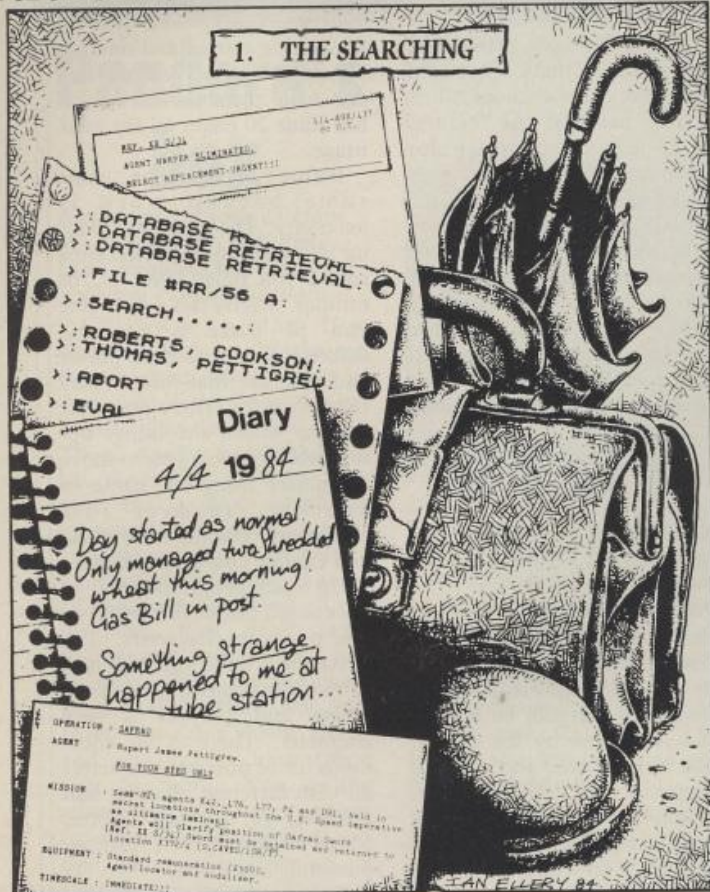 1. THE SEARCHING
REF. XX S/34
AGENT HARPER ELIMINATED.
SELECT REPLACEMENT-URGENT!!!
>:DATABASE
>:DATABASE RETRIEVAL
>:DATABASE RETRIEVAL:
>:FILE #RR/56 A:
>:SEARCH.....:
>:ROBERTS, COOKSON:
>:THOMAS, PETTIGREW:
>:ABORT
>:EVAL
Diary
4/4 1984
Day started as normal
Only managed two shredded
wheat this morning!
Gas Bill in post.
Something strange
happened to me at
tube station...
OPERATION : SAFRAD
AGENT : Rupert James Pettigrew.
FOR YOUR EYES ONLY
MISSION : agents K42, L76, L77, and D91, held in
secret locations throughout the U.K. Speed imperative
as ultimatum imminent.
Agents will clarify position of Safrad Sword
(Ref. XX S/34) Sword must be obtained and returned to
location
EQUIPMENT : Standard remuneration
Agent locator and
TIMESCALE : IMMEDIATE!!!
IAN ELLERY 84